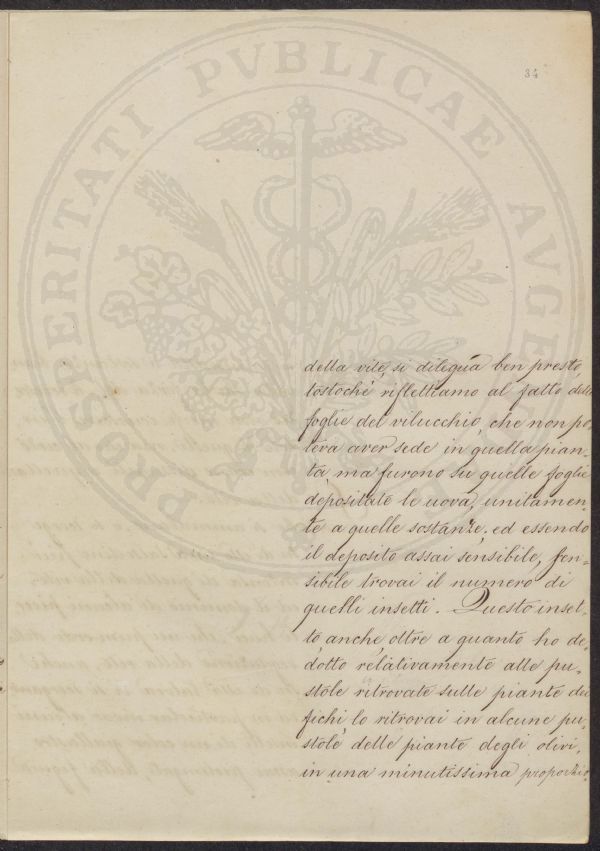 34
PROSPERITATI PVBLICAE AVGE
della vite, si dilegua ben presto
tostochè riflettiamo al fatto delle
foglie del vilucchio, che non po-
teva aver sede in quella pian-
ta ma furono su quelle foglie
depositate le uova, unitamen-
te a quelle sostanze; ed essendo
il deposito assai sensibile, sen-
sibile trovai il numero di
quelli insetti. Questo inset-
to, anche oltre a quanto ho de-
dotto relativamente alle pu-
stole ritrovate sulle piante dei
fichi lo ritrovai in alcune pu-
stole delle piante degli olivi,
in una minutissima proporzio-